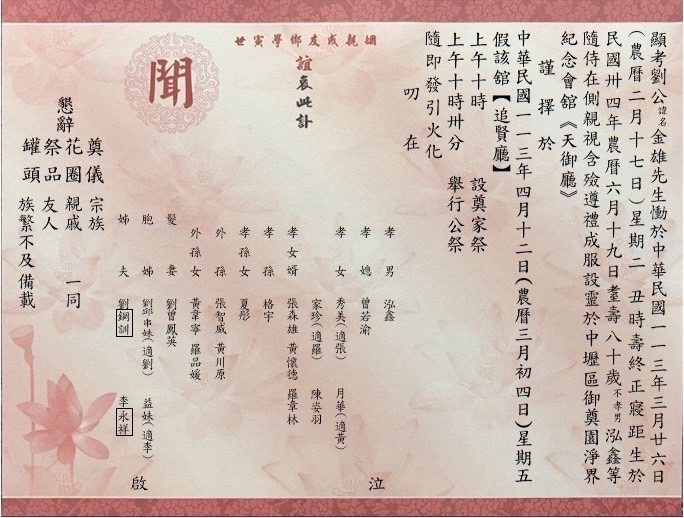 顯考劉公諱名金雄先生慟於中華民國一一三年三月廿六日
(農曆二月十七日)星期二 丑時壽終正寢距生於
民國卅四年農曆六月十九日耋壽八十歲不孝男泓鑫等
隨侍在側親視含殮遵禮成服設靈於中壢區御奠園淨界
紀念會館《天御廳》
謹擇於
中華民國一一三年四月十二日(農曆三月初四日)星期五
假該館【追賢廳】
上午十時 設奠家祭
上午十時卅分 舉行公祭
隨即發引火化
叨在
姻親戚友鄉學寅世
誼哀此訃
聞
孝男 泓鑫
孝媳 曾若渝
孝女 秀美(適張) 月華(適黃)
家珍(適羅) 陳姿羽
孝女婿 張森雄 黃懷德 羅章林
孝孫 格宇
孝孫女 夏彤
外孫 張智威 黃川原
外孫女 黃韋寧 羅品媛
髮妻 劉曾鳳英
胞姊 劉邱串妹(適劉) 益妹(適李)
姊夫 劉鋼訓 李永祥
泣
啟
奠儀 宗族
懇辭 花圈 親戚 一同
祭品 友人
罐頭 族繁不及備載